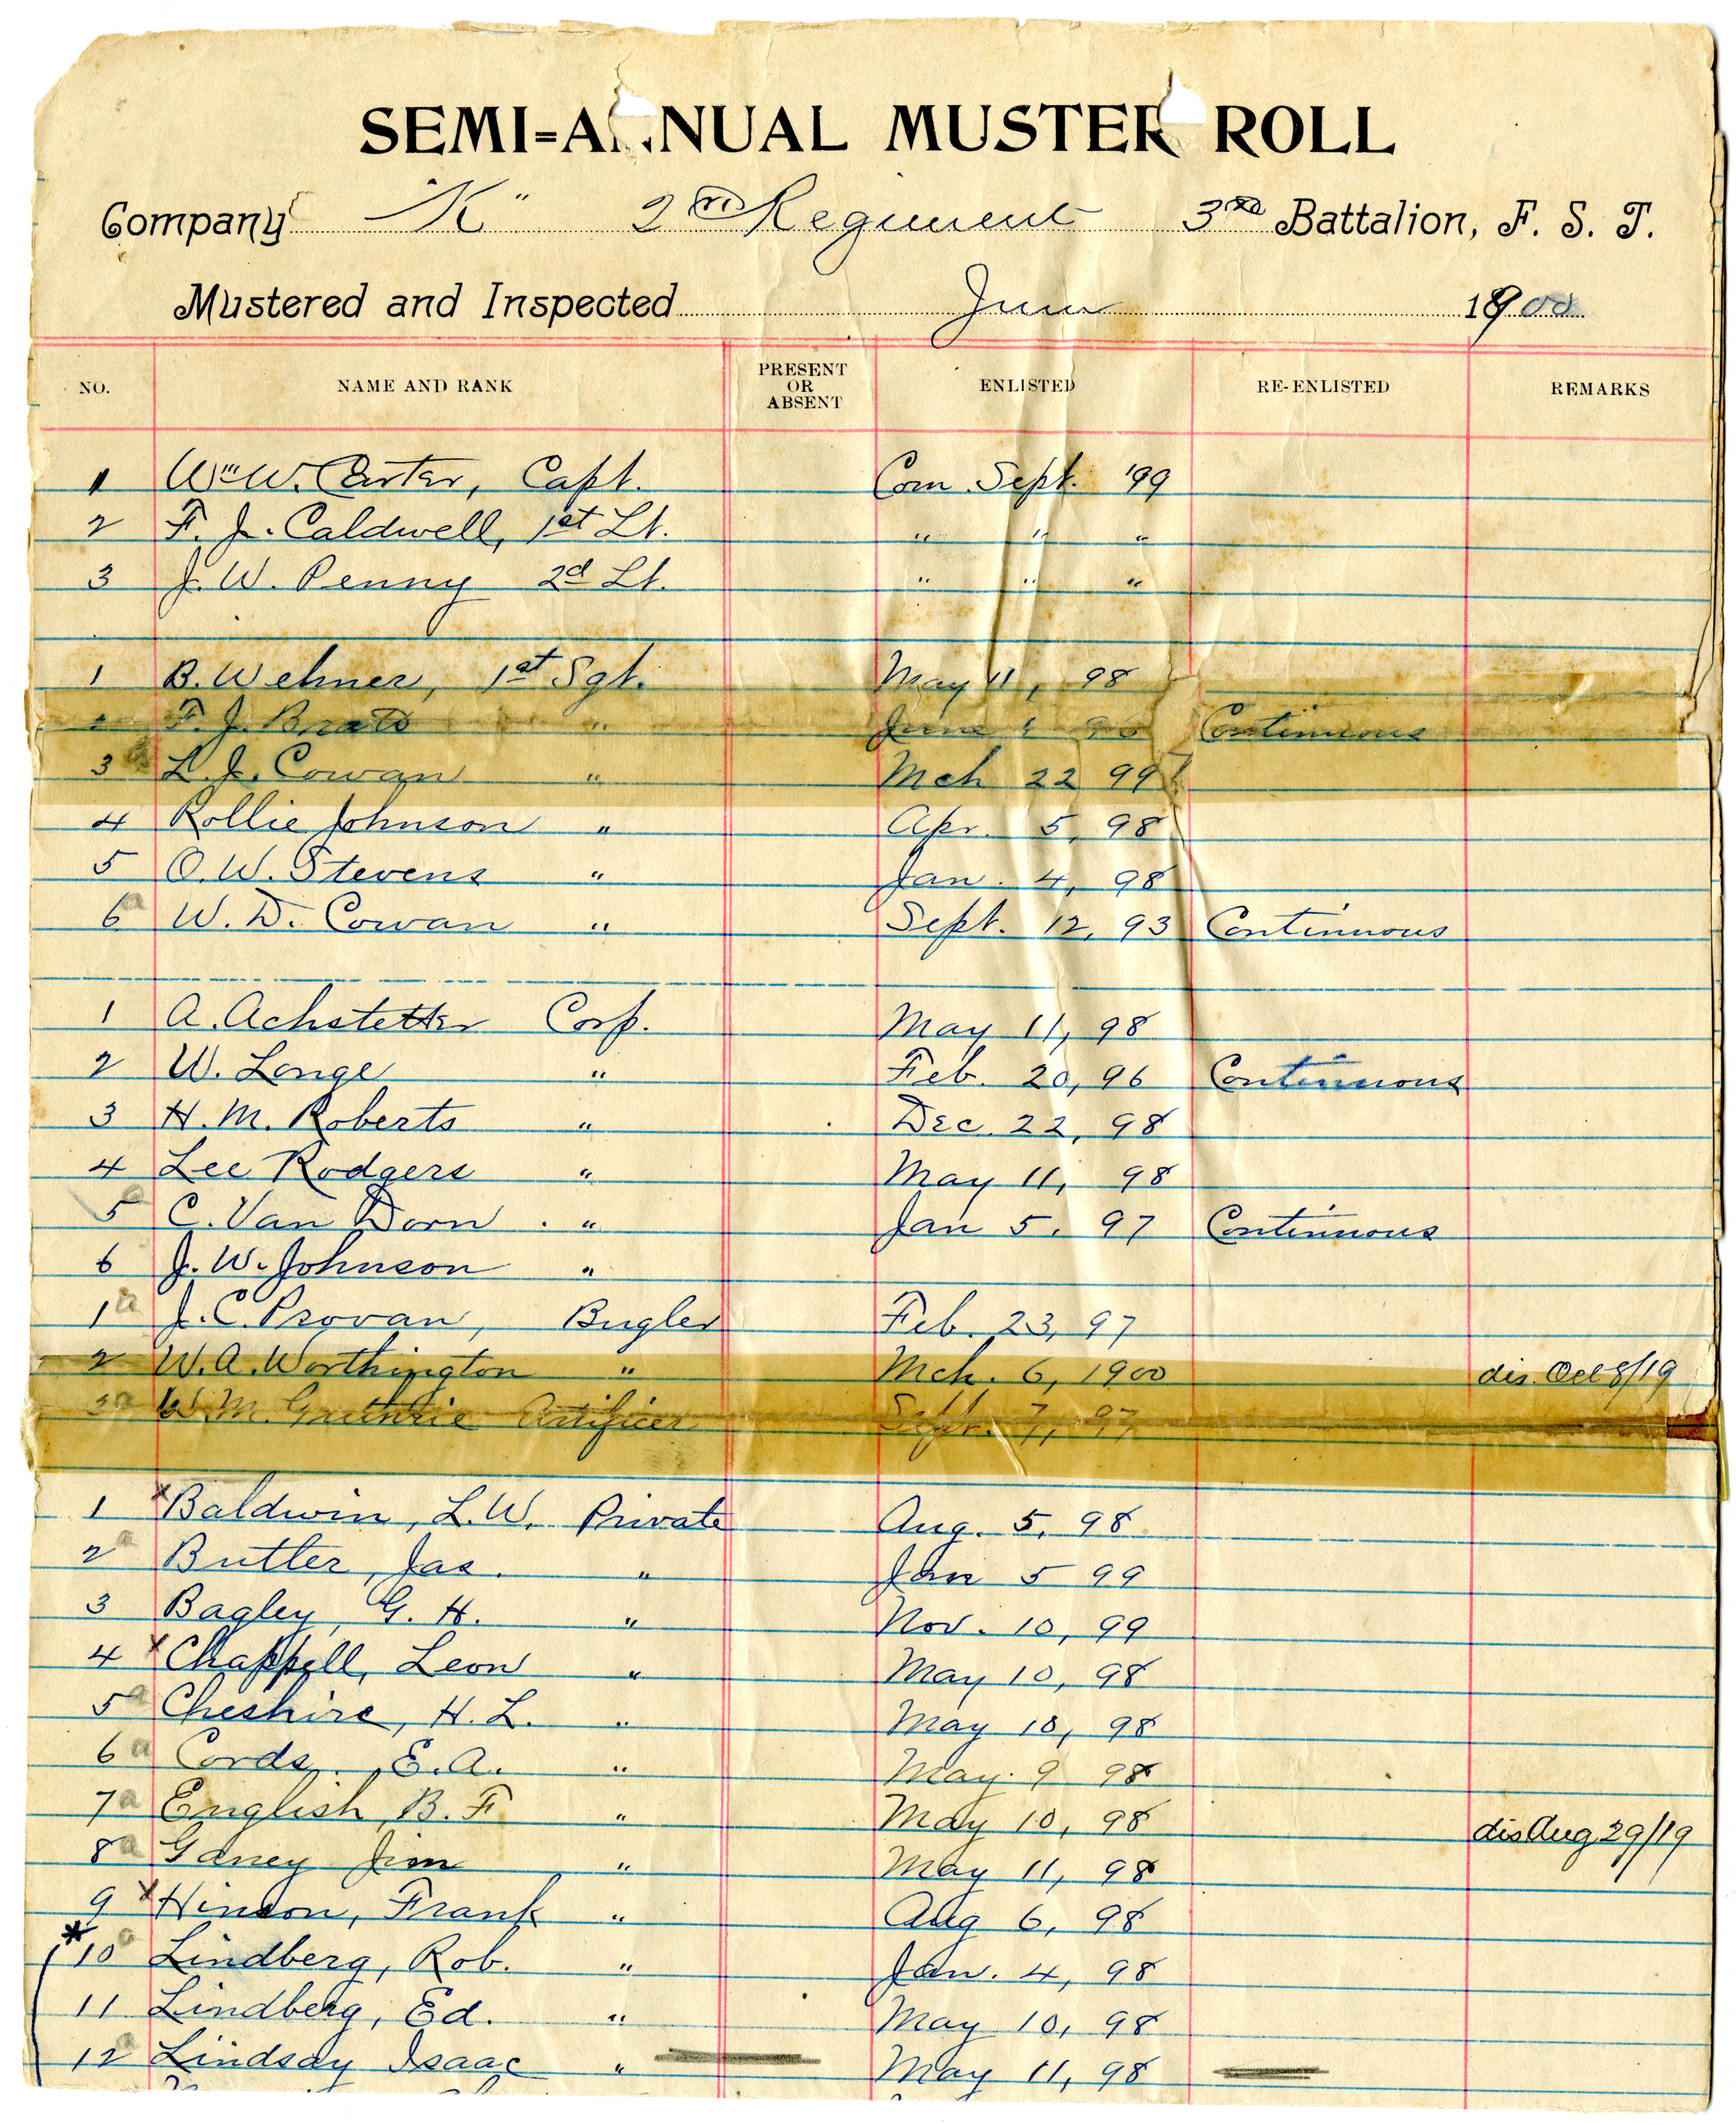 SEMI=ANNUAL MUSTER ROLL
Company "K" 2nd Regiment 3rd Battalion, F. S. T.
Mustered and Inspected June 1900
NO. NAME AND RANK PRESENT OR ABSENT ENLISTED RE-ENLISTED REMARKS
1 Wm W. Carter, Capt. Com. Sept. '99
2 F. J. Caldwell, 1st Lt. " " "
3 J. W. Penny 2d Lt. " " "
1 B. Wehner, 1st Sgt. May 11, 98
2 F. J. " June 96 Continuous
3 a L. J. Cowan " Mch 22 99
4 Rollie Johnson " Apr. 5, 98
5 O. W. Stevens " Jan. 4, 98
6 a W. D. Cowan " Sept. 12, 93 Continuous
1 A. Achstetter Corp. May 11, 98
2 W. Longe " Feb. 20, 96 Continuous
3 H. M. Roberts " Dec. 22, 98
4 Lee Rodgers " May 11, 98
5 a C. Van Dorn . " Jan 5, 97 Continuous
6 J. W. Johnson "
1 a J. C. Provan, Bugler Feb. 23, 97
2 W. A. Worthington " Mch. 6, 1900 dis. Oct 8/19
3 a W. M. Guthrie Artificer Sept. 7, 97
1 x Baldwin, L. W. Private Aug. 5, 98
2 a Butler, Jas. " Jan 5 99
3 Bagley, G. H. " Nov. 10, 99
4 x Chappell, Leon " May 10, 98
5 a Cheshire, H. L. " May 10, 98
6 a Cords, E. A. " May 9 98
7 a English, B. F " May 10, 98 dis Aug 29/19
8 a Ganey Jim " May 11, 98
9 x Hinson, Frank " Aug 6, 98
* 10 a Lindberg, Rob. " Jan. 4, 98
11 Lindberg, Ed. " May 10, 98
12 a Lindsay Isaac " May 11, 98